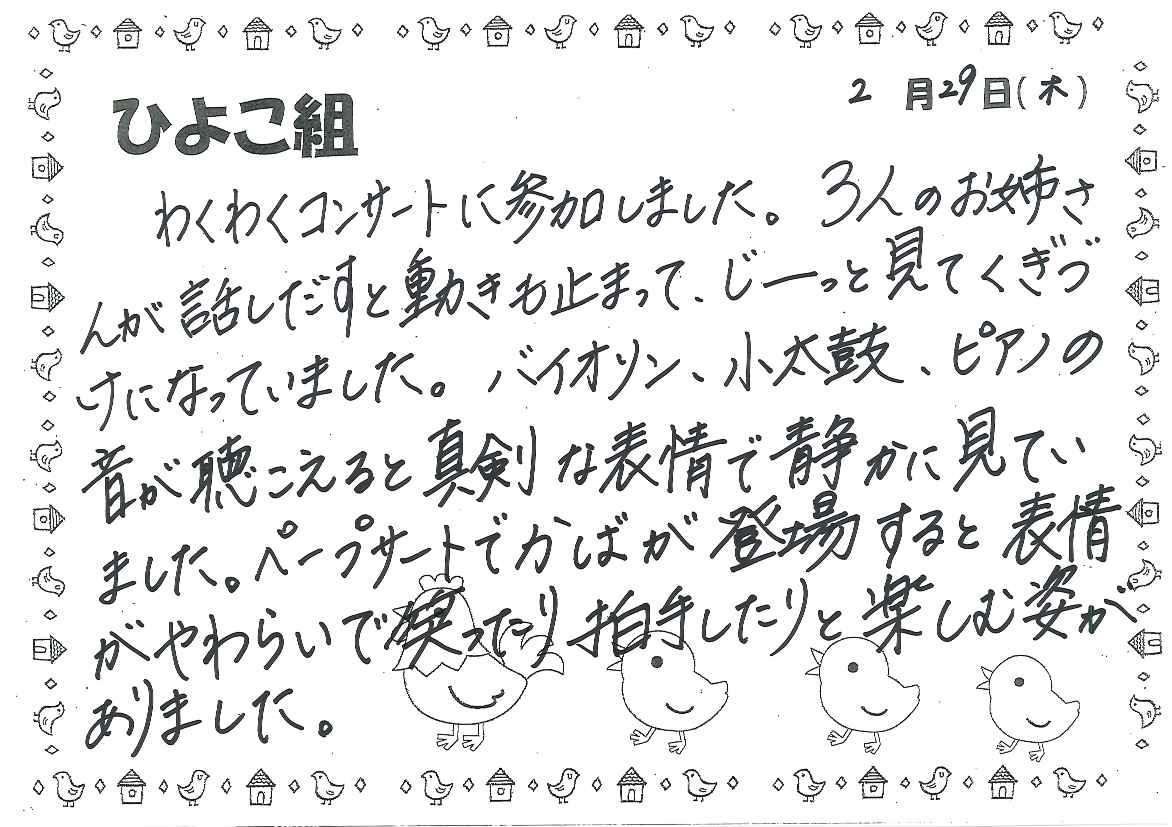 2月29日(木)
ひよこ組
わくわくコンサートに参加しました。3人のお姉さ
んが話しだすと動きも止まって、じーっと見てくぎづ
けになっていました。バイオリン、小太鼓、ピアノの
音が聴こえると真剣な表情で静かに見てい
ました。ペープサートでかばが登場すると表情
がやわらいで笑ったり拍手したりと楽しむ姿が
ありました。